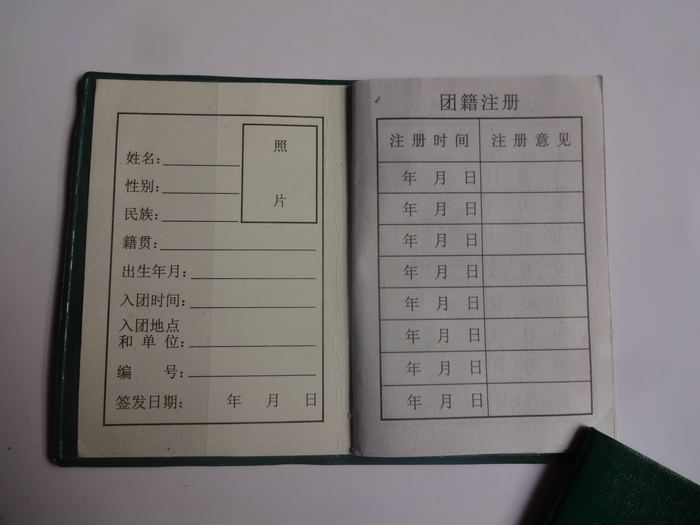 照
片
姓名:
性别:
民族:
籍贯:
出生年月:
入团时间:
入团地点
和单位:
编 号:
签发日期: 年 月 日
团籍注册
注册时间 注册意见
年 月 日
年 月 日
年 月 日
年 月 日
年 月 日
年 月 日
年 月 日
年 月 日